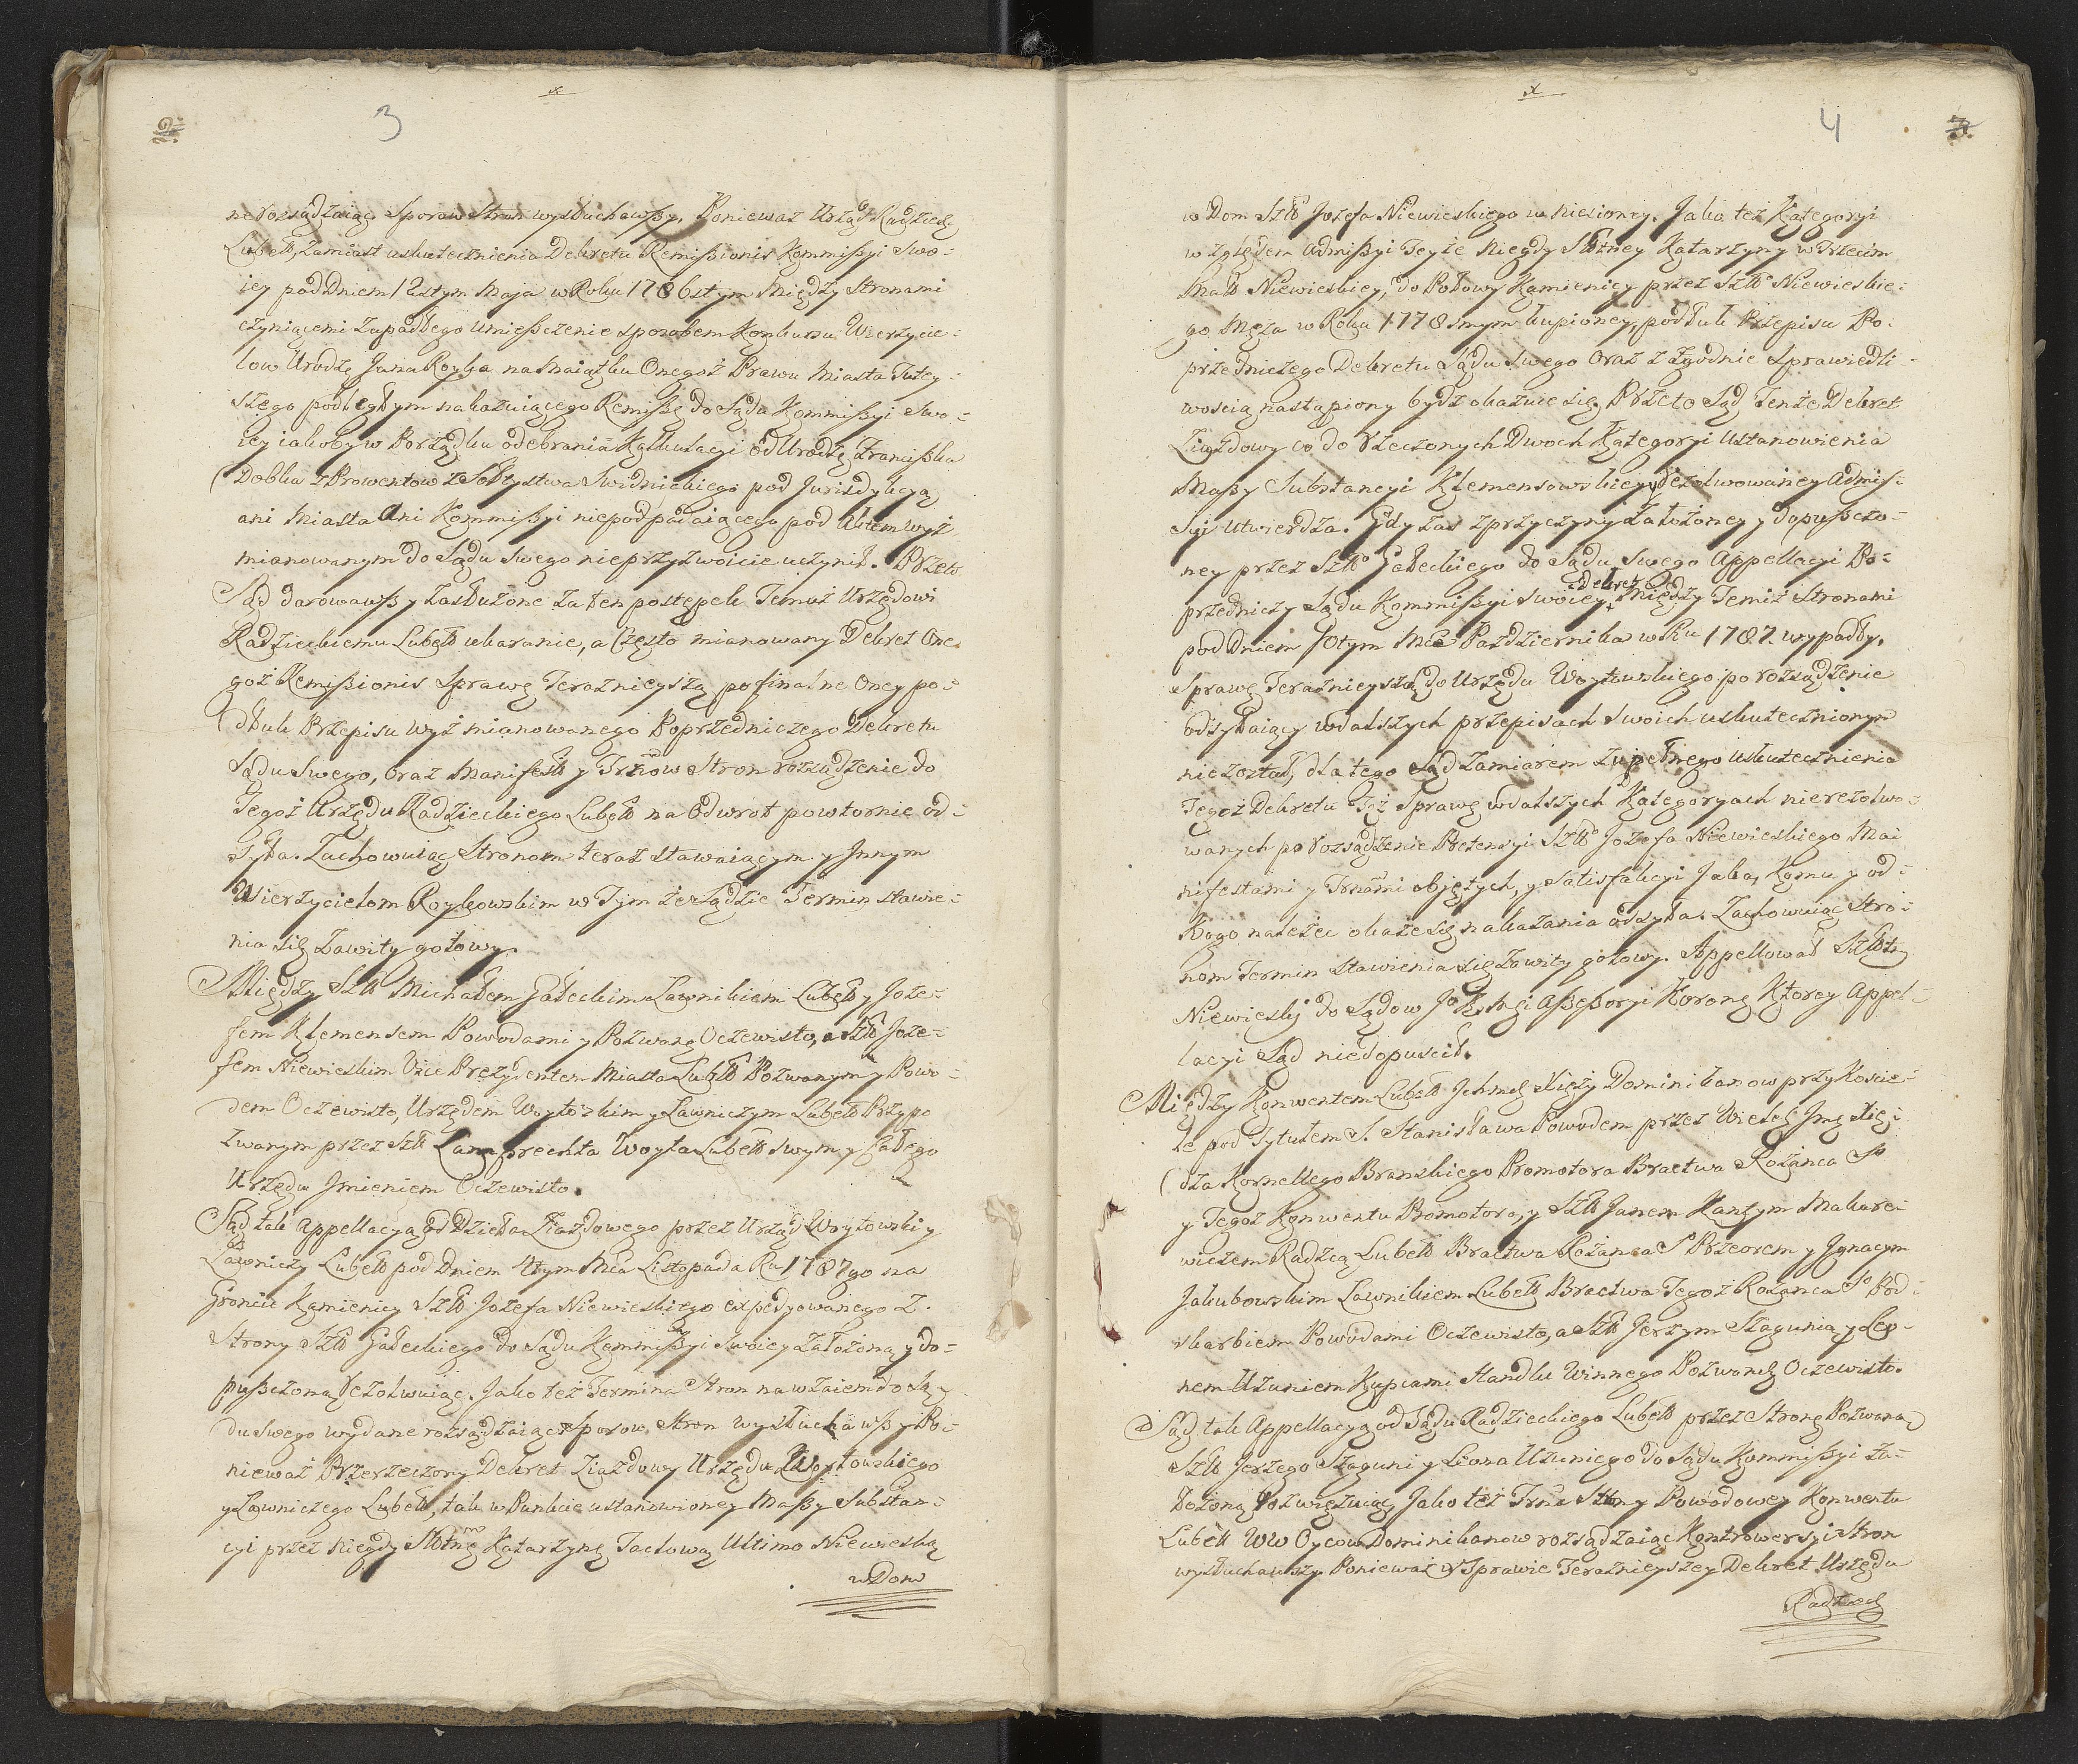 x
2.
3
ne rozsądzaiąc, Sporow Stron wysłuchawszy, Ponieważ Urząd Radziecki
Lubelł, zamiast uskutecznienia Dekretu Remissionis Kommissyi Swo-
iey pod Dniem 12stym Maja w Roku 1786stym Między Stronami
czyniącemi zapadłego umieszczenie sposobem Konkursu Wierzycie-
low Urodz Jana Roylia na Maiątku Onegoż Prawu Miasta Tutey-
szego podległym nakazuiącego Remissę do Sądu Kommissyi Swo-
iey iakoby w Porządku odebrania Kalkulacyi od Urodz Franciszka
Dobka z Prowentow z Sołtystwa Swidnickiego pod Jurisdykcyą
ani Miasta Ani Kommissyi niepodpadaiącego pod Aktem wyż
mianowanym do Sądu Swego nieprzyzwoicie uczynił. Przeto
Sąd darowawszy zasłużone za ten postępek Temuż Urzędowi
Radzieckiemu Lubelł ukaranie, a Często mianowany Dekret One-
goż Remissionis Sprawę Teraznieyszą po finalne Oney po-
dług Przepisu wyż mianowanego Poprzedniczego Dekretu
Sądu Swego, oraz Manifestł y Trmow Stron rozsądzenie do
Tegoż Urzędu Radzieckiego Lubelł na Odwrot powtornie od-
syła. Zachowuiąc Stronom teraz stawaiącym y Innym
Wierzycielom Roylkowskim w Tym że Sądzie Termin stawie-
nia się Zawity gotowy.
Między Szl Michałem Gałeckim Ławnikiem Lubelł y Joze-
fem Klemensem Powodami y Pozwane Oczewisto, a Szl Joze-
fem Niewieskim Vice Prezydentem Miasta Lubelł Pozwanym y Powo-
dem Oczewisto, Urzędem Woytoskim y Ławniczym Lubelł Przypo
zwanym przez Szl Lamprechta Woyta Lubelł swym y Całego
Urzędu Jmieniem Oczewisto.
Sąd tak Appellacyą od Dzieła Ziazdowego przez Urząd Woytowski y
Ławniczy Lubelł pod Dniem 4tym Mca Listopada Ru 1787go na
Groncie Kamienicy Szl Jozefa Niewieskiego expedyowanego z
Strony Szl Gałeckiego do Sądu Kommissyi Swoiey załozoną y do-
puszczoną rezolwuiąc, Jako też Termina Stron nawzaiem do Są-
du Swego wydane rozsądzaiąc Sporow Stron wysłuchawszy Po-
nieważ Przerzeczony Dekret Ziazdowy Urzędu Woytowskiego
y Ławniczego Lubelł, tak w Punkcie ustanowioney Massy Substan-
cyi przez niegdy Słotnę Katarzynę Tactową Ultimo Niewieską
w Dom
x
4
3.
w Dom Szl Jozefa Niewieskiego wniesioney. Jako też Kategoryi
względem Admissyi Teyże niegdy Słotney Katarzyny w Trzecim
Małł Niewieskiey, do Połowy Kamienicy przez Szl Niewieskie-
go Męza w Roku 1778smym kupioney, podług Przepisu Po-
przedniczego Dekretu Sądu Swego oraz z Zgodnie Sprawiedli-
woscią nastąpiony bydz okazuie się. Przeto Sąd Tenże Dekret
Ziazdowy co do rzeczonych Dwoch Kategoryi Ustanowienia
Massy Substancyi Klemensowskiey y rezolwowaney Admis-
syi utwierdza. Gdy zas z przyczyny Założoney y dopuszczo-
ney przez Szl Gałeckiego do Sądu Swego Appellacyi Po-
przedniczy Sądu Kommissyi Swoiey Dekret Między Temiż Stronami
pod Dniem 10tym Mca Pazdziernika w Ru 1787. wypadły,
Sprawę Teraznieyszą do Urzędu Woytowskiego po rozsądzenie
odsyłaiący w dalszych przepisach Swoich uskutecznionym
nie został, dla tego Sąd Zamiarem zupełnego uskutecznienia
Tegoż Dekretu Też Sprawę w dalszych Kategoryach nierezolwo-
wanych po rozsądzenie Pretensyi Szl Jozefa Niewieskiego Ma-
nifestami y Trnami obiętych, y Satisfakcyi Jaka, Komu y od
Kogo nalezec okaze się nakazania odsyła. Zachowuiąc Stro-
nom Termin stawienia się Zawity gotowy. Appellował Szl
Niewieski do Sądow J. K. Mci Assessoryi Koronę Ktorey Appel-
lacyi Sąd niedopuscił.
Między Konwentem Lubelł Jchmc Xięży Dominikanow przy Koscie-
le pod Tytułem S. Stanisława Powodem przez Wielel Jmc Xię-
dza Kornellego Branskiego Promotora Bractwa Rożanca So
y Tegoż Konwentu Promotora, y Szl Janem Kantym Makare-
wiczem Radzcą Lubelł Bractwa Rożanca S Przeorem y Jgnacym
Jakubowskim Ławnikiem Lubelł Bractwa Tegoż Rożanca So Pod-
skarbiem Powodami Oczewisto, a Szl Jerzym Szagunią y Leo-
nem Uzuniem Kupcami Handlu Winnego Pozwanel Oczewisto.
Sąd tak Appellacyą od Sądu Radzieckiego Lubelł przez Stronę Pozwaną
Szl Jerzego Szaguni y Leona Uzuniego do Sądu Kommissyi za-
łożoną rozwięzuiąc Jako też Trna Strony Powodowey Konwentu
Lubelł WW Oycow Dominikanow rozsądzaiąc Kontrowersyi Stron
wysłuchawszy. Ponieważ w Sprawie Teraznieyszey Dekret Urzędu
Radzieck